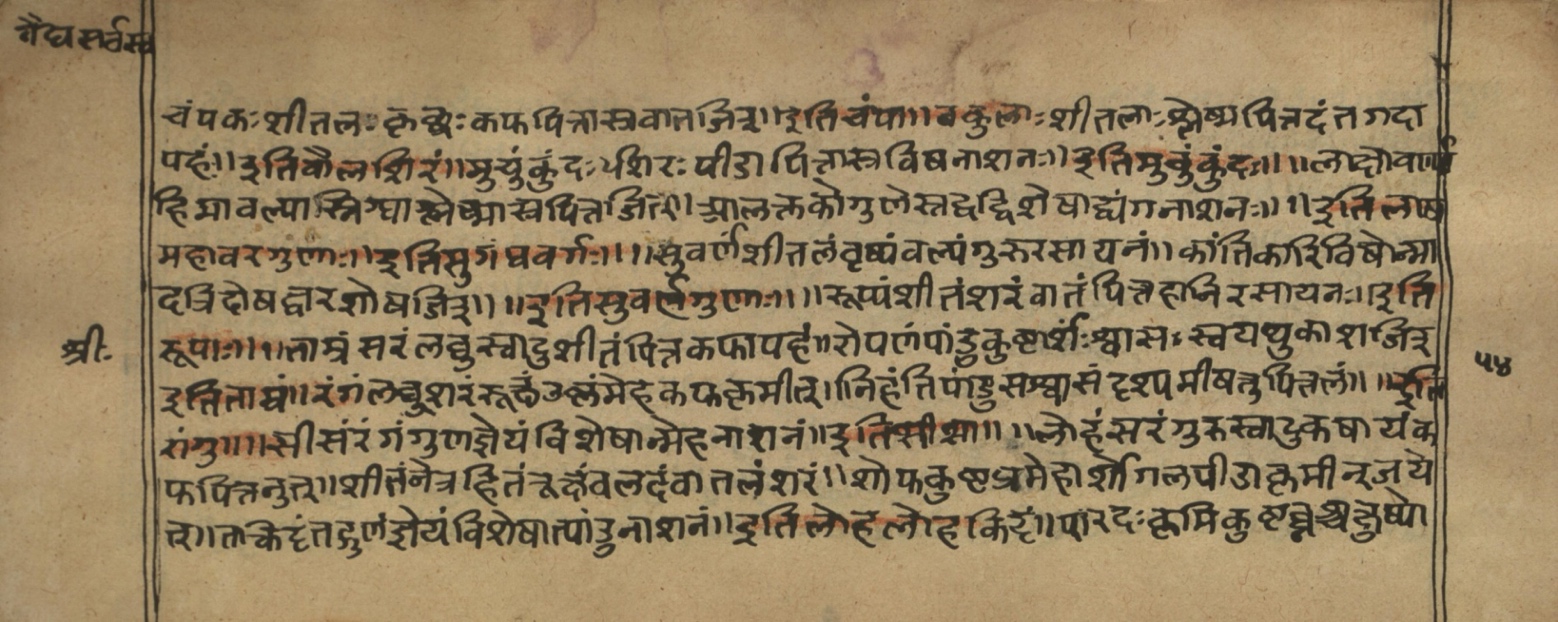 वैद्य सर्वस्व
चंपकः शीतलः कृछ्रः कफपित्तास्रवातजित्॥ इति चंपा॥ वकुलाः शीतलाः श्लेष्मपित्तदंतगदा
पहं॥ इति वौलशिरं॥ मुचुंकुंदः शिरःपीडापित्तास्रविषनाशनः॥ इति मुचुंकुंदः॥ ॥ लाक्षौवर्ण्या
हिमावल्यास्निग्धाश्लेष्मास्रपित्तजित्॥ आलक्तकौगुणेस्तद्वद्विशेषाद्व्यंगनाशनः॥ ॥ इति लाष
महावरगुणाः॥ इति सुगंधवर्गः॥ ॥ सुवर्णंशीतलंवृष्यंवल्यंगुरुरसायनं॥ कांतिकारिविषोन्मा
दत्रिदोषद्वरशोषजित्॥ ॥ इति सुवर्णगुणाः॥ ॥ रूप्यंशीतंशरंवातंपित्तहानिरसायनः॥ इति
रूपाः॥ ॥ ताम्रंसरंलघुस्वादुशीतंपित्तकफापहं॥ रोपणंपांडुकुष्टार्शःश्वासःस्वयथुकाशजित्
श्रीः
५४
इति ताम्रं॥ रंगंलघुशरंरूक्षंउष्णंमेहकफकृमीत्॥ निहंतिपांडुसश्वासंदृश्यमीषत्तुपित्तलं॥ ॥ इति
रांगु॥ ॥ सीसंरंगंगुणज्ञेयंविशेषान्मेहनाशनं॥ इति सीसा॥ ॥ लोहंसरंगुरुस्वादुकषायंक
फपित्तनुत्॥ शीतंनेत्रहितंरूक्षंवलदंवातलंशरं॥ शोफकुष्टप्रमेहार्शोगलपीडाकृमीन्जये
त्॥ तत्किट्टंतद्गुणंज्ञेयंविशेषात्पांडुनाशनं॥ इति लोहलोहकिट्टं॥ पारदःकृमिकुष्टघ्नश्चक्षुष्यो